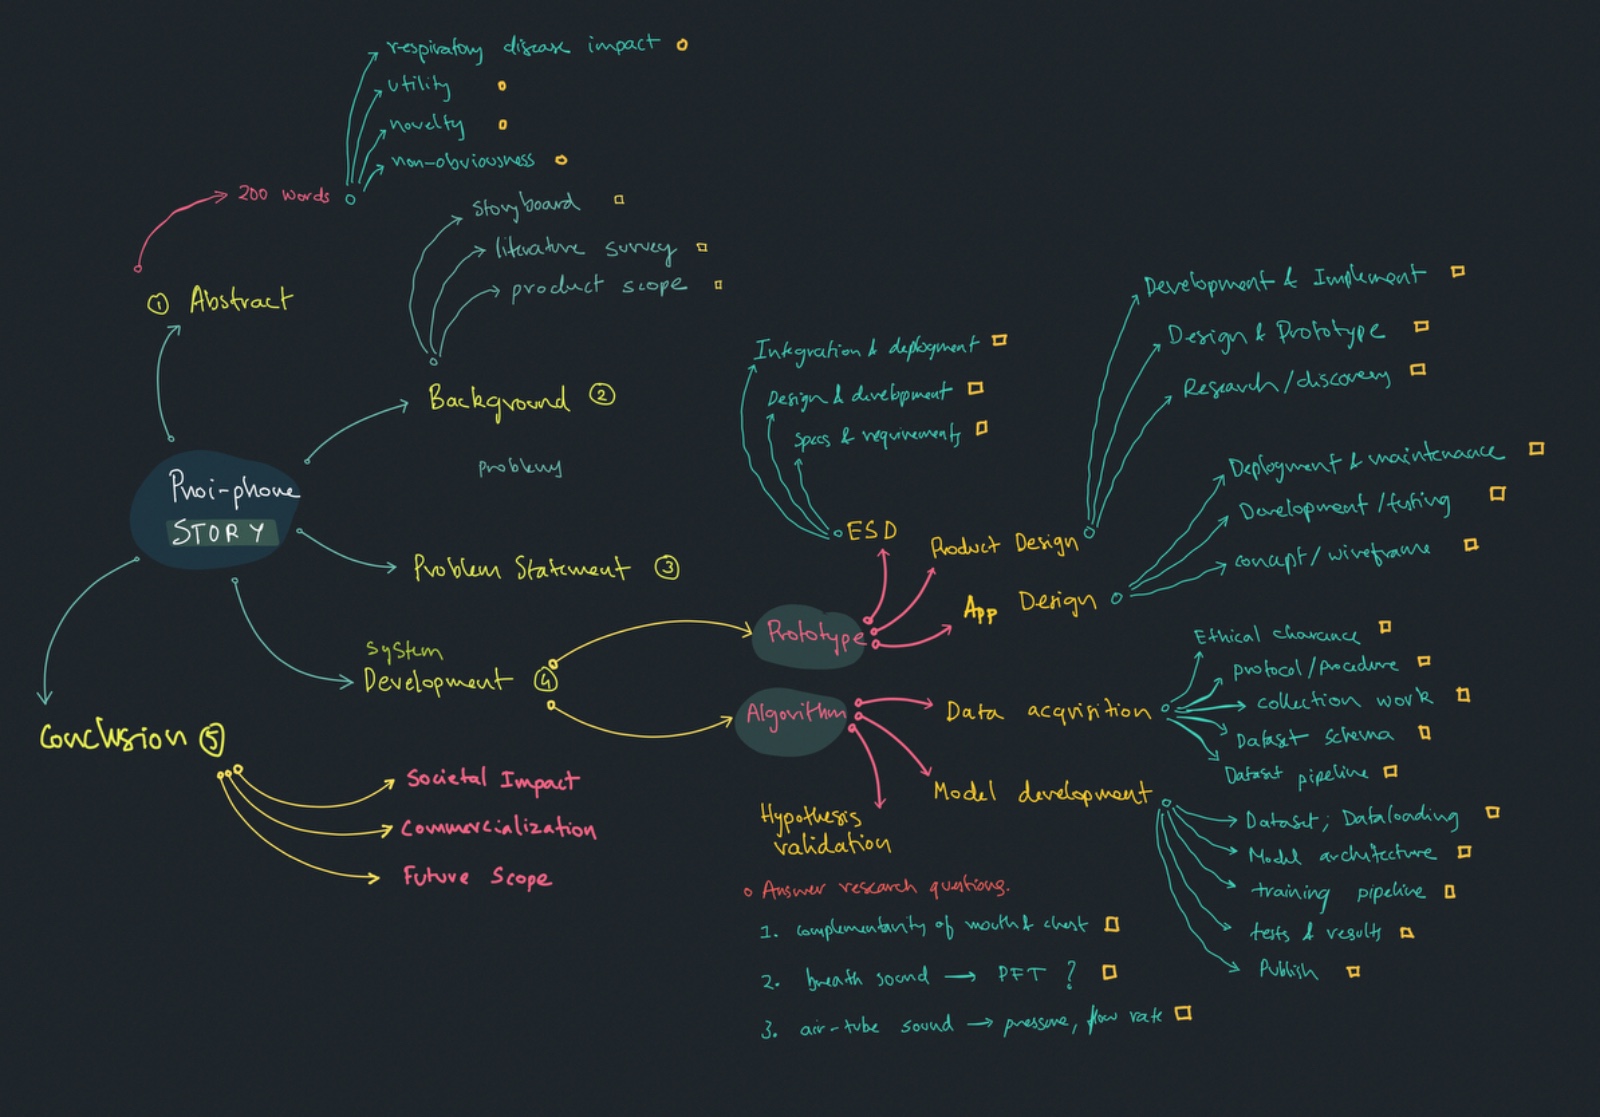 respiratory disease impact
utility
novelty
non-obviousness
200 words
storyboard
literature survey
product scope
① Abstract
Background ②
problems
Pnoi-phone
STORY
Problem Statement ③
system
Development ④
Conclusion ⑤
Societal Impact
Commercialization
Future Scope
Prototype
Algorithm
ESD
Integration & deployment
Design & development
specs & requirements
Product Design
Development & Implement
Design & Prototype
Research/discovery
App Design
Deployment & maintenance
Development/testing
concept/wireframe
Data acquisition
Ethical clearance
protocol/procedure
collection work
Dataset schema
Dataset pipeline
Model development
Dataset; Dataloading
Model architecture
training pipeline
tests & results
Publish
Hypothesis
validation
Answer research questions.
1. complementarity of mouth & chest
2. breath sound → PFT ?
3. air-tube sound → pressure, flow rate